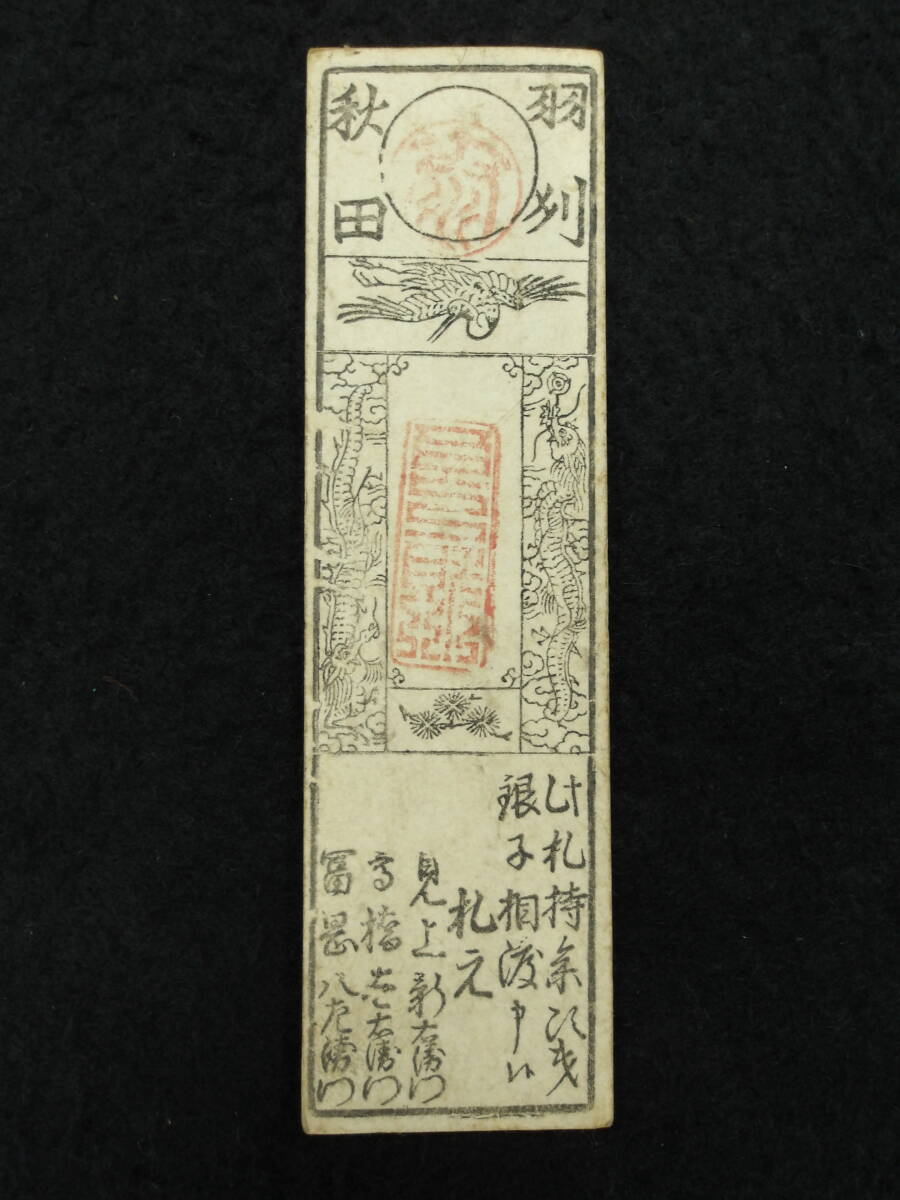 羽州
秋田
此札持参次第
銀子相渡申候
札元
見上新右衛門
高橋 右衛門
冨岡八左衛門